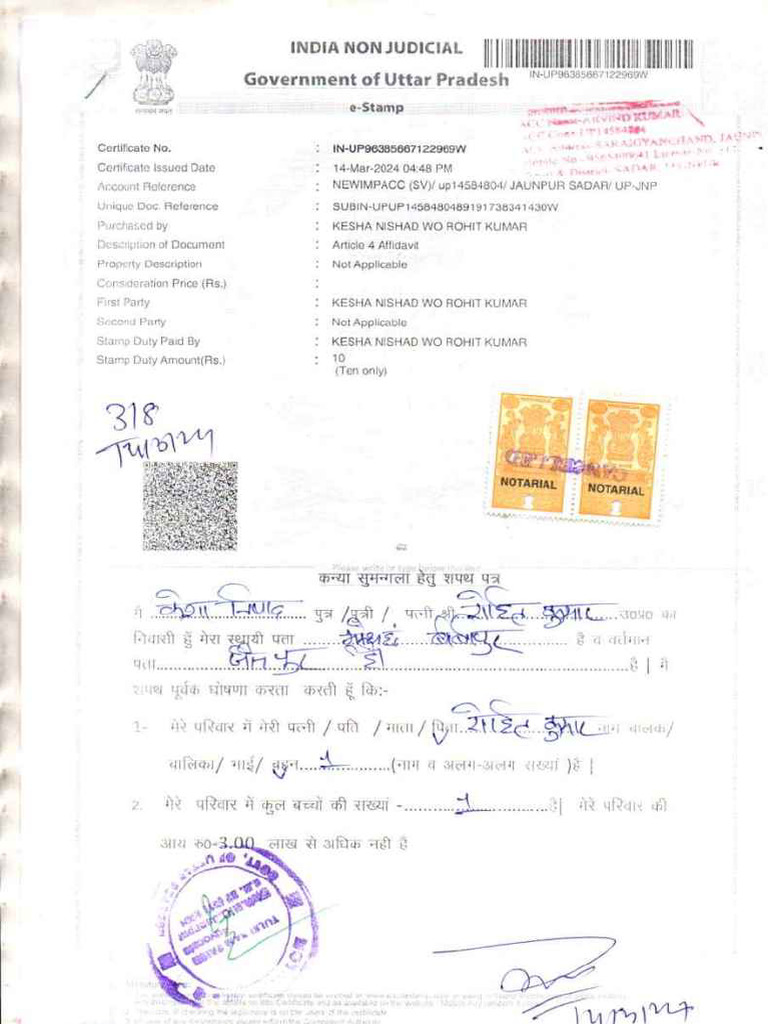 INDIA NON JUDICIAL
Government of Uttar Pradesh
IN-UP96385667122969W
e-Stamp
ARVIND KUMAR
Certificate No. : IN-UP96385667122969W
Certificate Issued Date : 14-Mar-2024 04:48 PM
Account Reference : NEWIMPACC (SV)/ up14584804/ JAUNPUR SADAR/ UP-JNP
Unique Doc. Reference : SUBIN-UPUP1458480489191738341430W
Purchased by : KESHA NISHAD WO ROHIT KUMAR
Description of Document : Article 4 Affidavit
Property Description : Not Applicable
Consideration Price (Rs.) :
First Party : KESHA NISHAD WO ROHIT KUMAR
Second Party : Not Applicable
Stamp Duty Paid By : KESHA NISHAD WO ROHIT KUMAR
Stamp Duty Amount(Rs.) : 10
(Ten only)
318
NOTARIAL NOTARIAL
CANCELLED
Please write or type below this line
कन्या सुमन्गला हेतु शपथ पत्र
मै केशा निषाद पुत्र /पुत्री / पत्नी श्री रोहित कुमार उ०प्र० का
निवासी हूँ मेरा स्थायी पता है व वर्तमान
पता है | मै
शपथ पूर्वक घोषणा करता करती हूँ कि:-
1- मेरे परिवार में मेरी पत्नी / पति / माता / पिता रोहित कुमार नाम बालक/
बालिका/ भाई/ बहन 1 (नाम व अलग-अलग सख्यां )है |
2. मेरे परिवार में कुल बच्चों की सख्यां - 1 है| मेरे परिवार की
आय रु०-3.00 लाख से अधिक नही है
GOVT. OF UTTAR